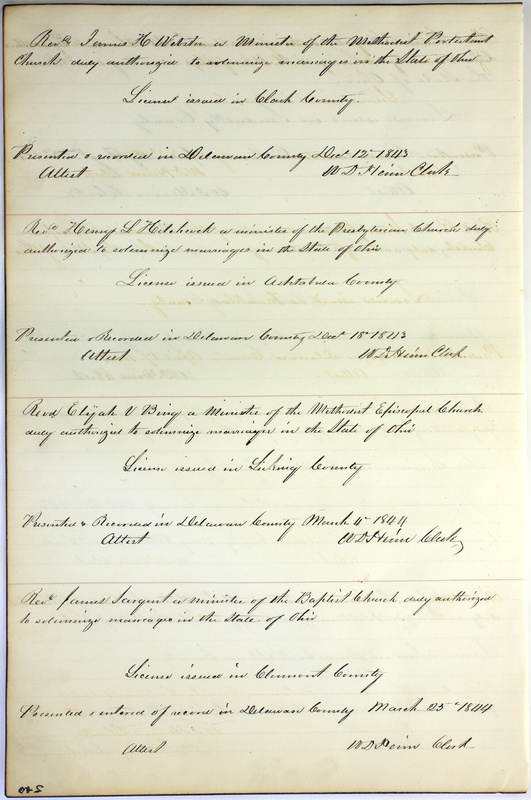 Revd. James H Webster a Minister of the Methodist Protestant
Church duly authorized to solemnize marriages in the State of Ohio
License issued in Clark County.
Presented & recorded in Delaware County Dect 12th 1843
Attest W D Heim Clerk
Revd Henry L Hitchcock a minister of the Presbyterian Church duly
authorized to solemnize marriages in the State of Ohio
License issued in Ashtabula County
Presented & Recorded in Delaware County Dect 18th 1843
Attest W D Heim Clerk
Revd Elijah V Bing a Minister of the Methodist Episcopal Church
duly authorized to solemnize marriages in the State of Ohio
License issued in Licking County
Presented & Recorded in Delaware County March 4th 1844
Attest W D Heim Clerk
Revd James Sargent a minister of the Baptist Church duly authorized
to solemnize marriages in the State of Ohio
License issued in Clermont County
Presented & entered of record in Delaware County March 25th 1844
Attest W D Heim Clerk